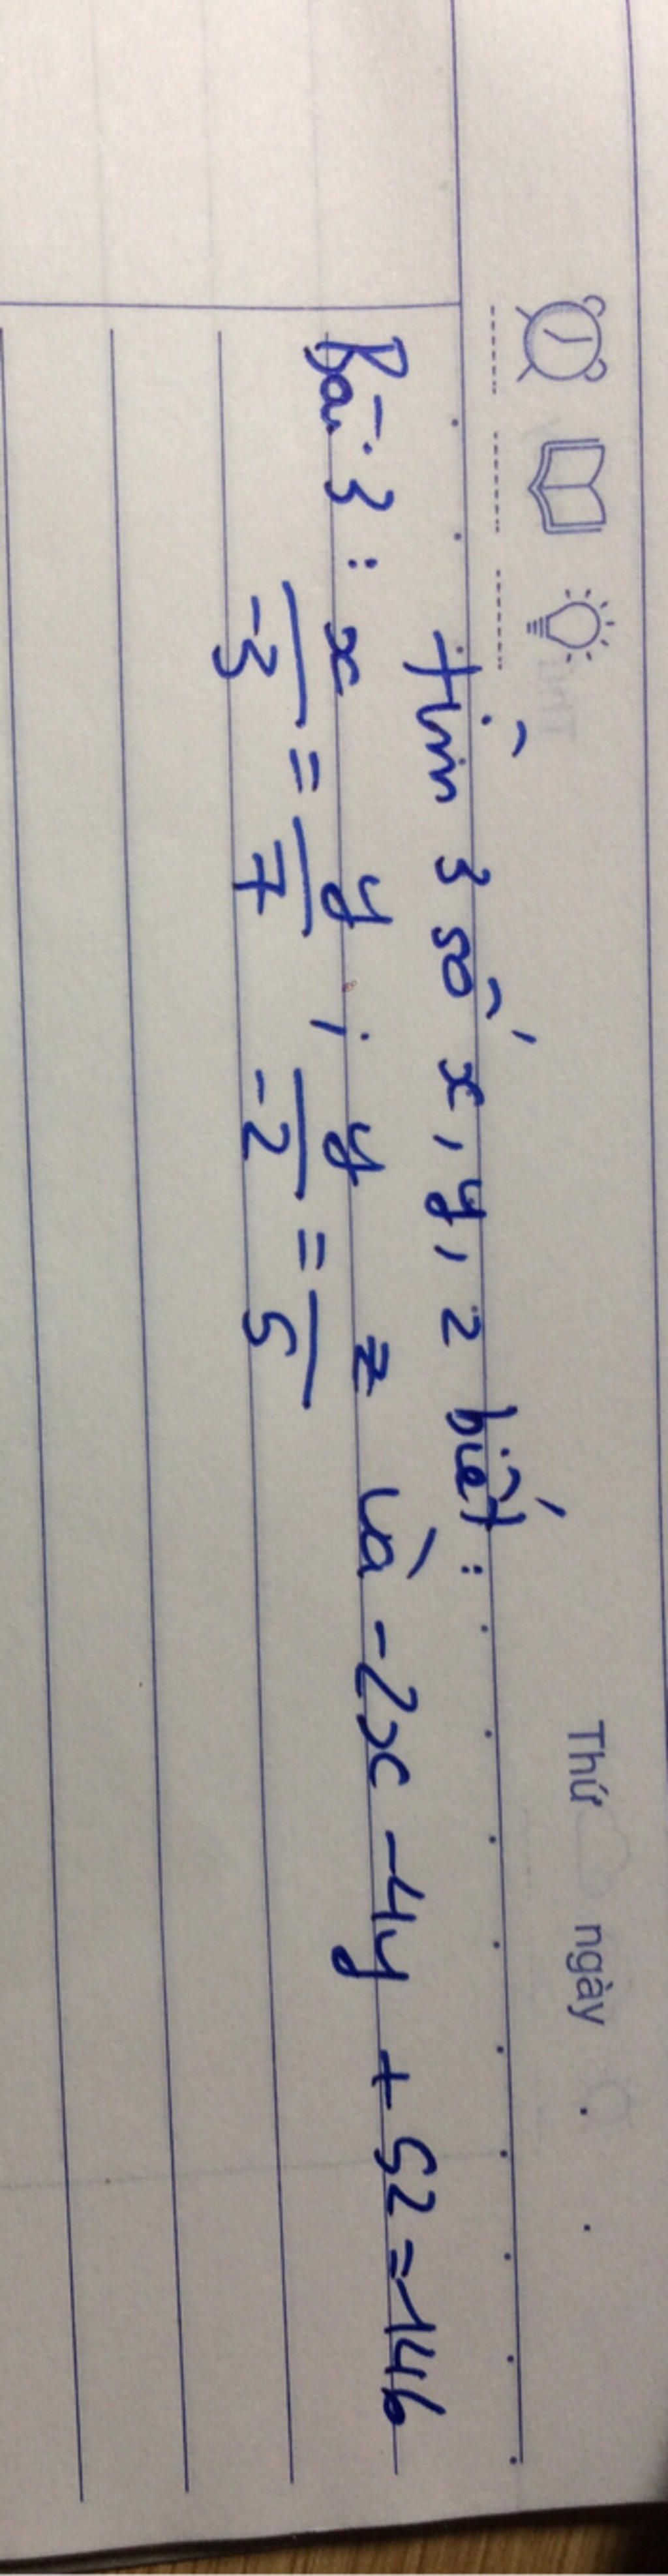 Thứ ngày
tìm 3 số x, y, z biết:
Bài 3: x/-3 = y/7 ; y/-2 = z/5 và -2x - 4y + 5z = 146